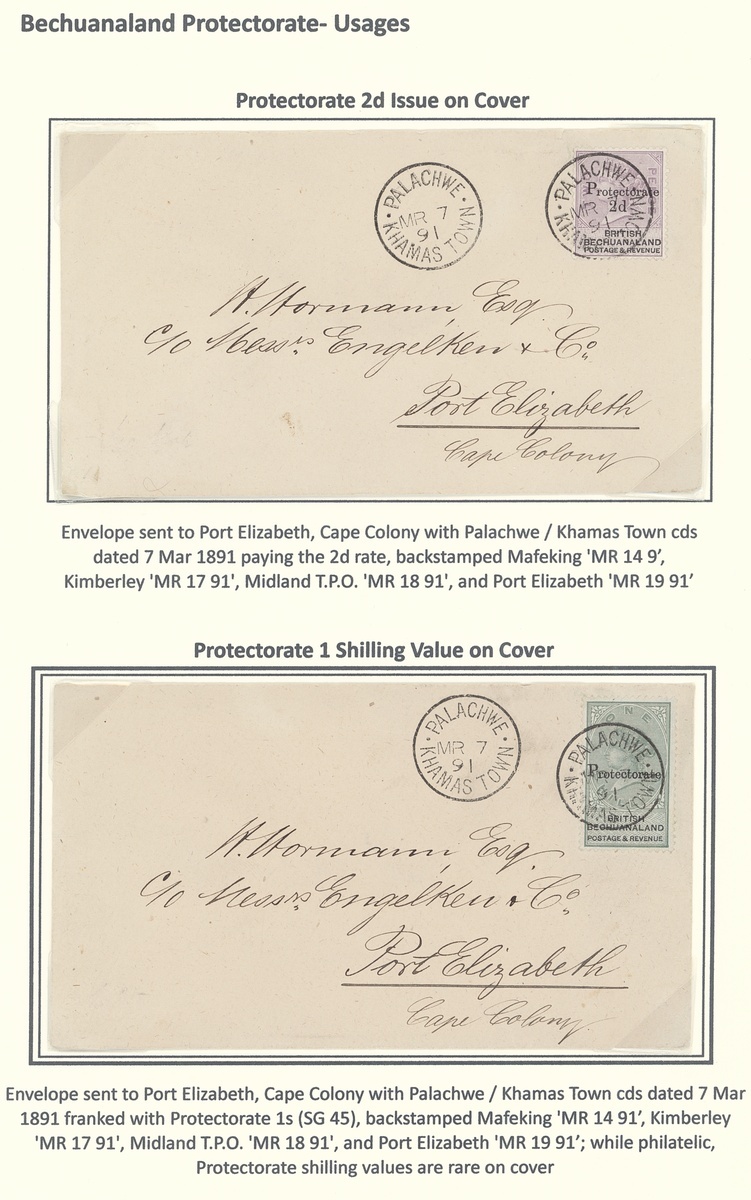 Bechuanaland Protectorate- Usages
Protectorate 2d Issue on Cover
PALACHWE
MR 7
91
KHAMAS TOWN
PALACHWE
MR
91
KHAMAS TOWN
PENCE
Protectorate
2d
BRITISH
BECHUANALAND
POSTAGE & REVENUE
H. Hormann, Esq
c/o Messrs. Engelken & Co.
Port Elizabeth
Cape Colony
Envelope sent to Port Elizabeth, Cape Colony with Palachwe / Khamas Town cds
dated 7 Mar 1891 paying the 2d rate, backstamped Mafeking 'MR 14 9’,
Kimberley 'MR 17 91', Midland T.P.O. 'MR 18 91', and Port Elizabeth 'MR 19 91’
Protectorate 1 Shilling Value on Cover
PALACHWE
MR 7
91
KHAMAS TOWN
ONE
PALACHWE
91
KHAMAS TOWN
Protectorate
BRITISH
BECHUANALAND
POSTAGE & REVENUE
H. Hormann, Esq.
c/o Messrs Engelken & Co.
Port Elizabeth
Cape Colony
Envelope sent to Port Elizabeth, Cape Colony with Palachwe / Khamas Town cds dated 7 Mar
1891 franked with Protectorate 1s (SG 45), backstamped Mafeking 'MR 14 91’, Kimberley
'MR 17 91', Midland T.P.O. 'MR 18 91', and Port Elizabeth 'MR 19 91’; while philatelic,
Protectorate shilling values are rare on cover